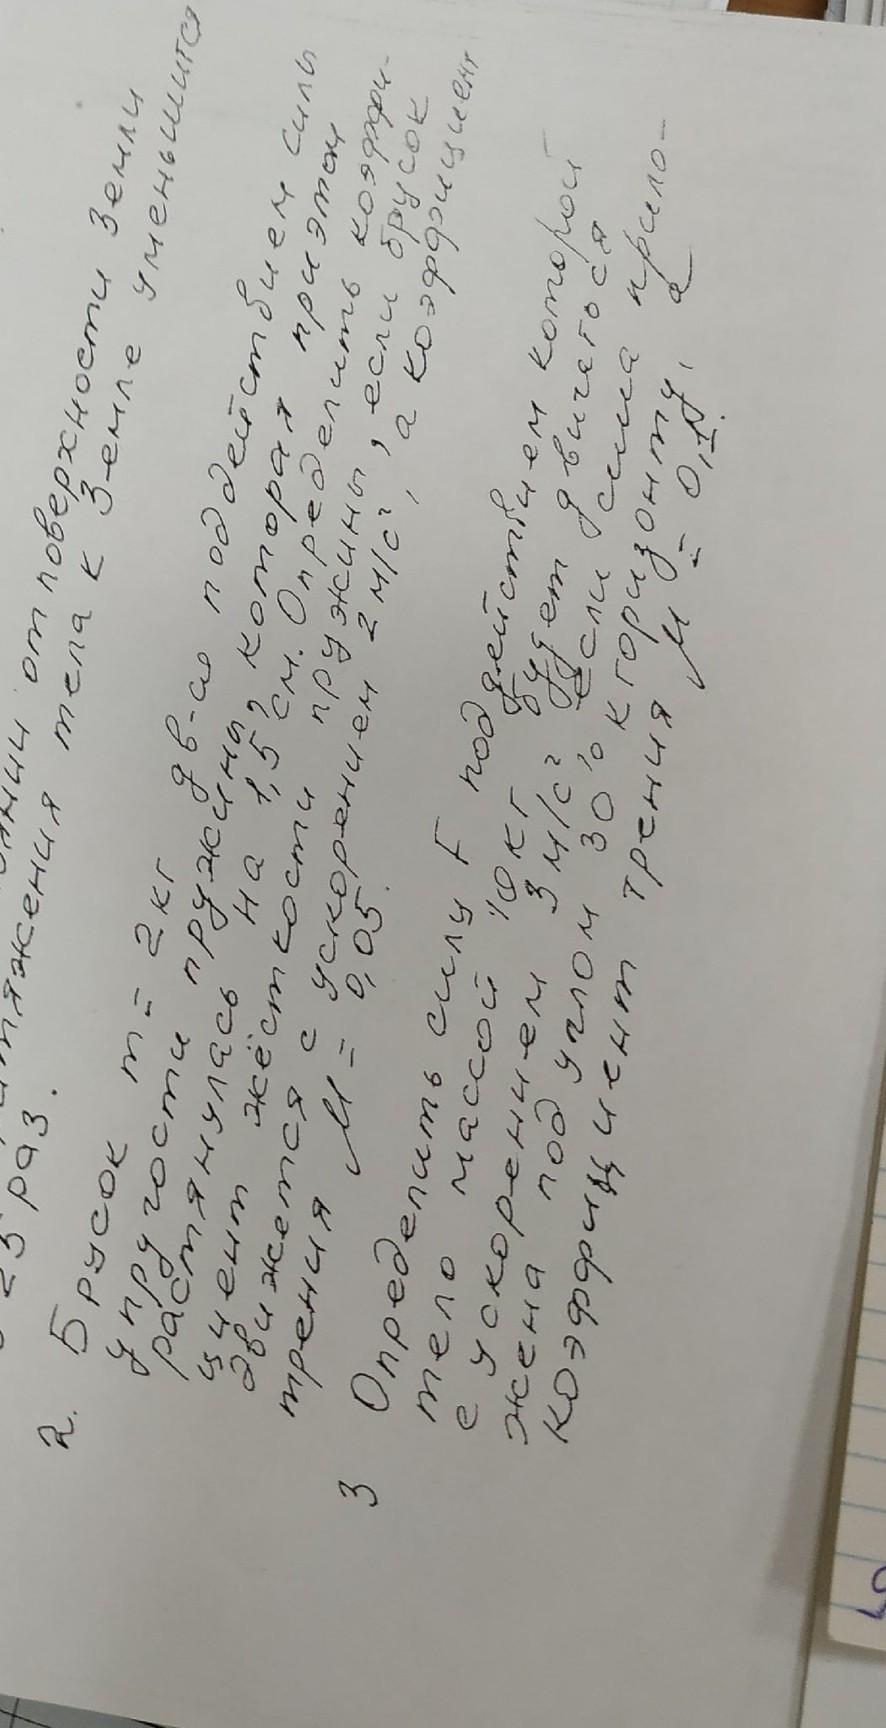 от поверхности Земли
притяжения тела к Земле уменьшится
25 раз.
2. Брусок m = 2 кг дв-ся под действием силы
упругости пружины, которая при этом
растянулась на 1,5 см. Определить коэффи-
циент жёсткости пружины, если брусок
движется с ускорением 2 м/с², а коэффициент
трения μ = 0,05.
3 Определить силу F под действием которой
тело массой 10 кг будет двигаться
с ускорением 3 м/с² если сила прило-
жена под углом 30° к горизонту, а
коэффициент трения μ = 0,1.